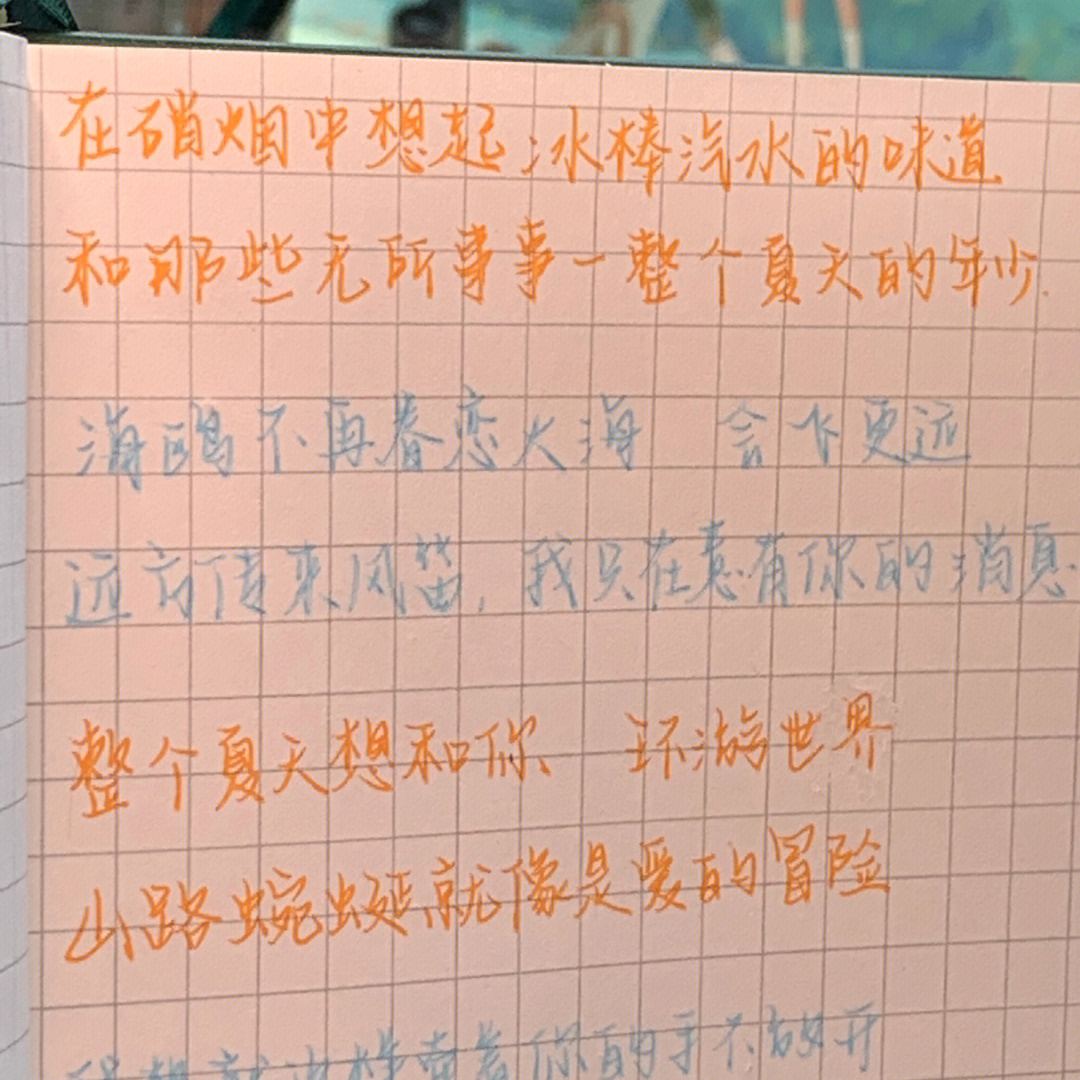 在硝烟中想起冰棒汽水的味道
和那些无所事事一整个夏天的年少.
海鸥不再眷恋大海 会飞更远
远方传来风笛,我只在意有你的消息.
整个夏天想和你、环游世界
山路蜿蜒,就像是爱的冒险
你的手不放开